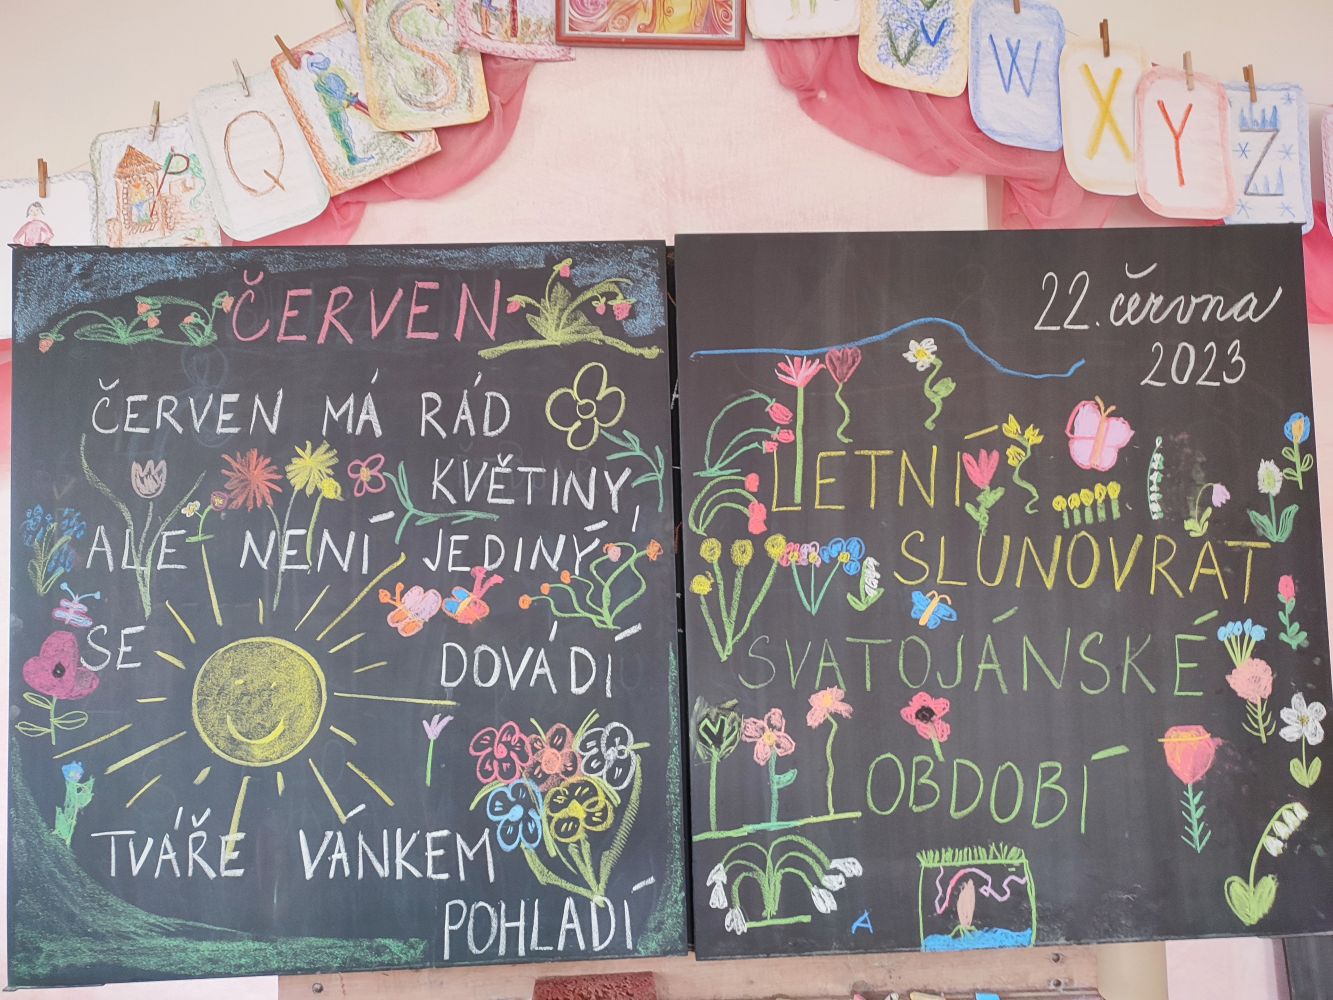 P Q R S
V W X Y Z
ČERVEN
ČERVEN MÁ RÁD
KVĚTINY,
ALE NENÍ JEDINÝ,
SE DOVÁDÍ
TVÁŘE VÁNKEM
POHLADÍ
22. června
2023
LETNÍ
SLUNOVRAT
SVATOJÁNSKÉ
OBDOBÍ
A